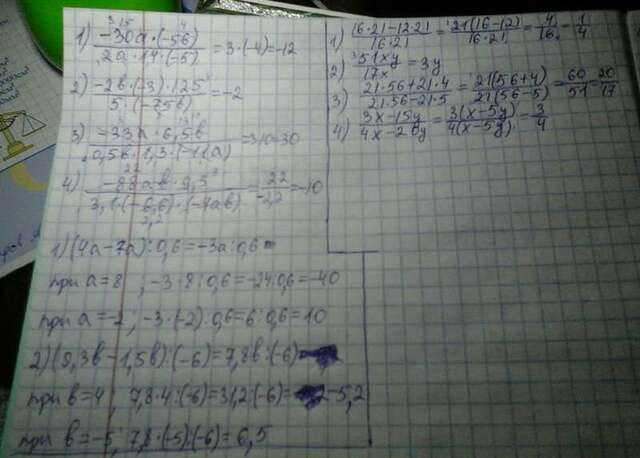 1) (-30a·(-56))/(2a·14·(-5)) = 3·(-4)=-12
2) (-2b·(-3)·125)/(5·(-75b)) = -2
3) (-33a·6,5b)/(0,5b·1,3·(-11a)) =3·10=30
4) (-88ab·9,3)/(3,1·(-6,6)·(-4ab)) = 22/-2,2 =-10
1) (4a-7a):0,6=-3a:0,6
при a=8 ; -3·8:0,6=-24:0,6=-40
при a=-2 ; -3·(-2):0,6=6:0,6=10
2) (9,3b-1,5b):(-6)=7,8b:(-6)
при b=4 ; 7,8·4:(-6)=31,2:(-6)= -5,2
при b=-5; 7,8·(-5):(-6)=6,5
1) (16·21-12·21)/(16·21) = (21(16-12))/(16·21) = 4/16 = 1/4
2) 51xy/17x = 3y
3) (21·56+21·4)/(21·56-21·5) = (21(56+4))/(21(56-5)) = 60/51 = 20/17
4) (3x-15y)/(4x-20y) = (3(x-5y))/(4(x-5y)) = 3/4